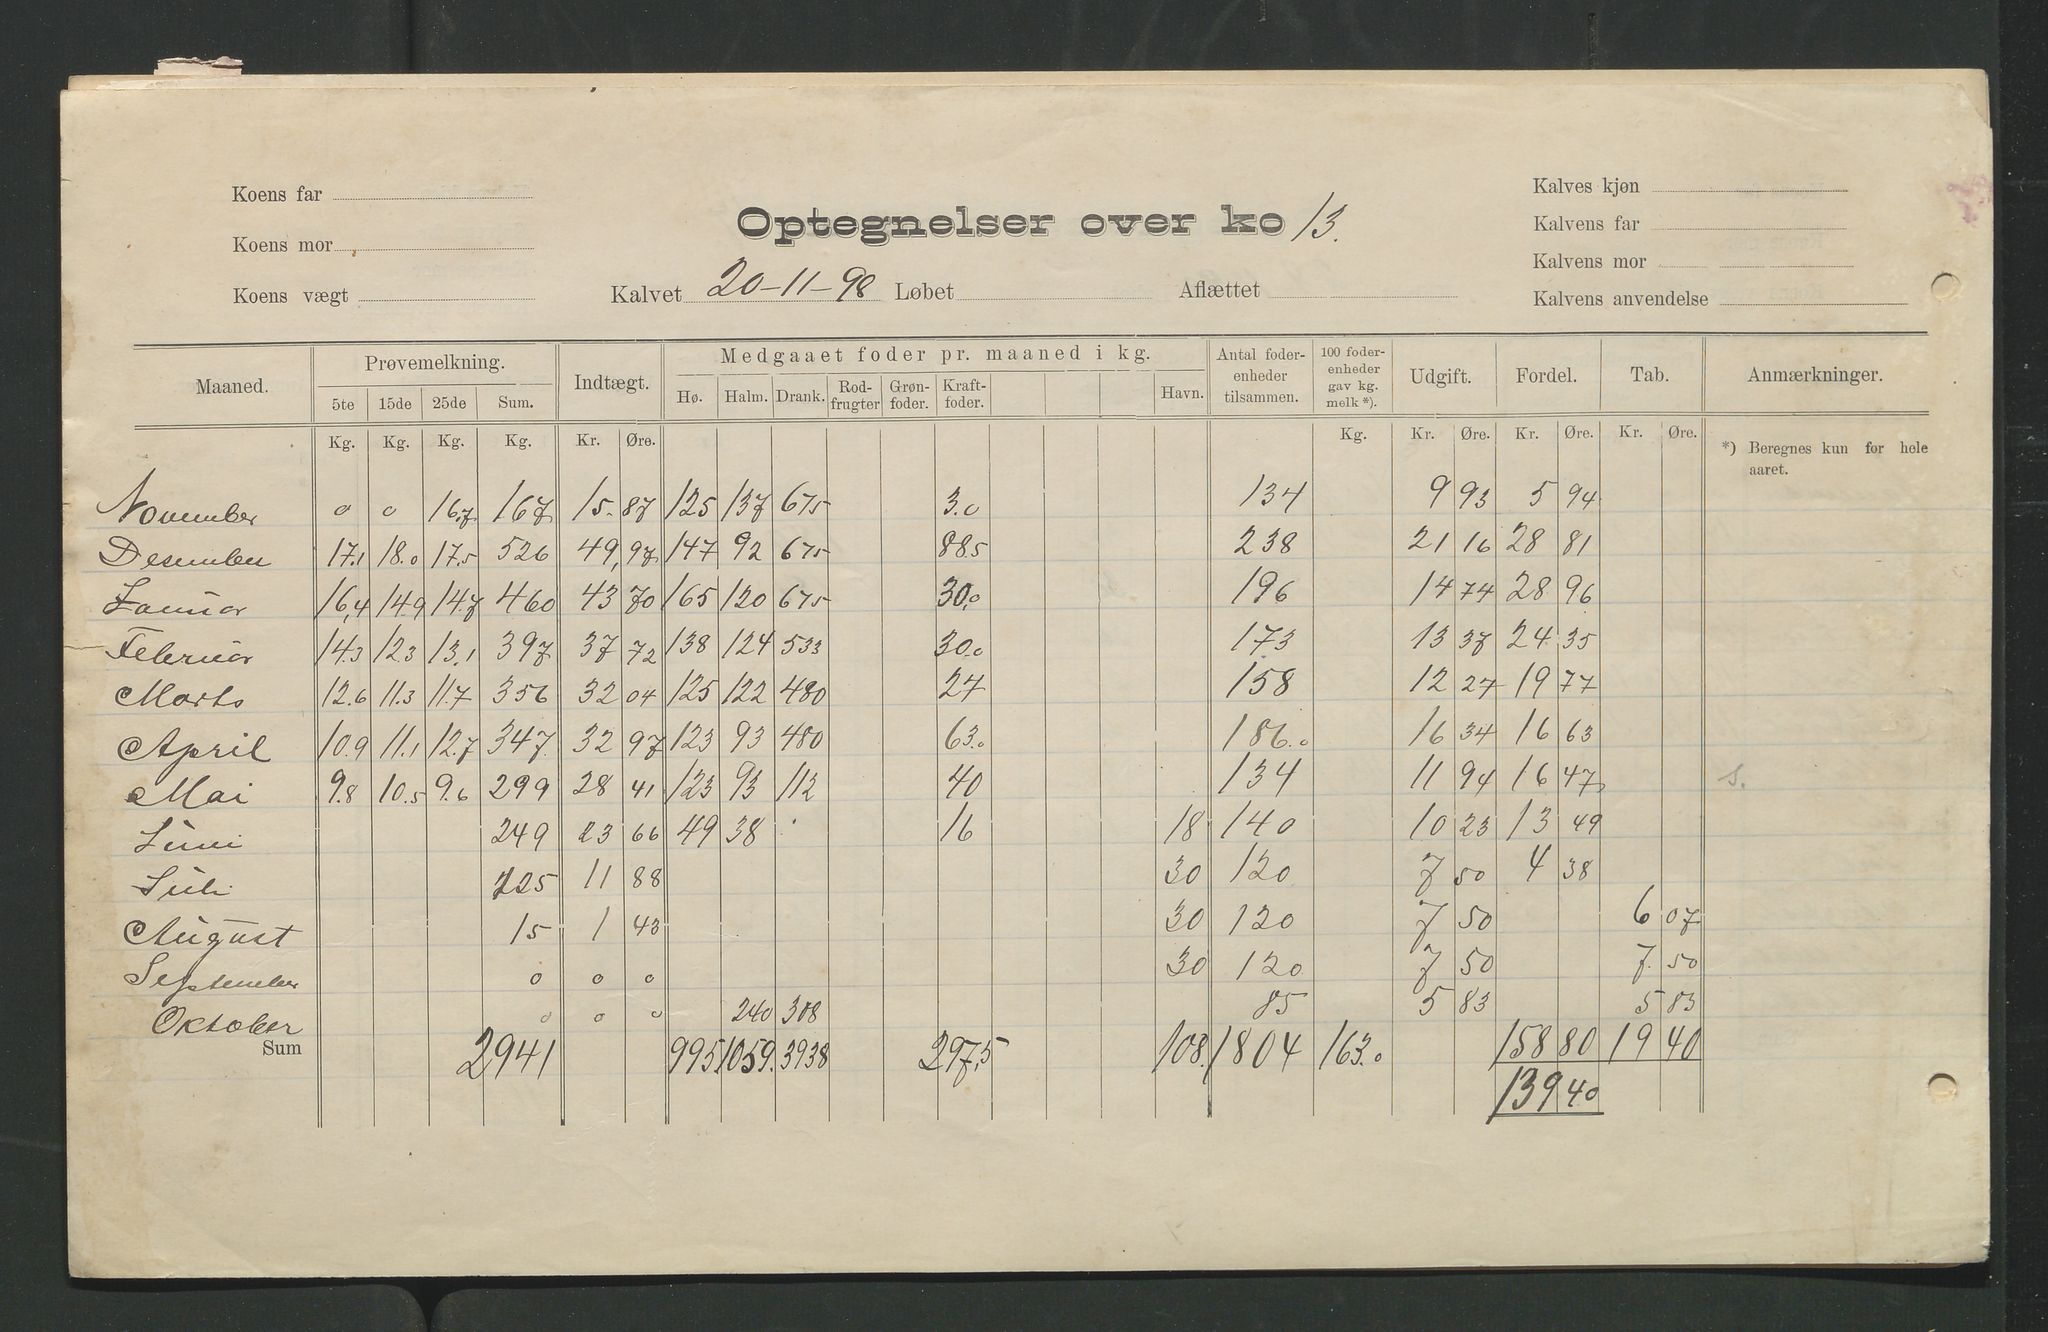 Koens far
Koens mor
Koens vægt
Optegnelser over ko 13.
Kalvet 20-11-98 Løbet Aflættet
Kalves kjøn
Kalvens far
Kalvens mor
Kalvens anvendelse
Maaned. Prøvemelkning. Indtægt. Medgaaet foder pr. maaned i kg. Antal foderenheder tilsammen. 100 foderenheder gav kg. melk *). Udgift. Fordel. Tab. Anmærkninger.
5te 15de 25de Sum. Hø. Halm. Drank. Rodfrugter Grønfoder. Kraftfoder. Havn.
Kg. Kg. Kg. Kg. Kr. Øre. Kg. Kr. Øre. Kr. Øre. Kr. Øre.
*) Beregnes kun for hele aaret.
November 0 0 16.7 167 15. 87 125 137 675 3.0 134 9 93 5 94
Desember 17.1 18.0 17.5 526 49, 97 147 92 675 885 238 21 16 28 81
Januar 16,4 14.9 14.7 460 43 70 165 120 675 30,0 196 14 74 28 96
Februar 14.3 12.3 13.1 397 37 72 138 124 533 30.0 173 13 37 24 35
Marts 12.6 11.3 11.7 356 32 04 125 122 480 27 158 12 27 19 77
April 10.9 11.1 12.7 347. 32 97 123 93 480 63.0 186.0 16 34 16 63
Mai 9.8 10.5 9.6 299 28 41 123 93 112 40 134 11 94 16 47
Juni 249 23 66 49 38 16 18 140 10 23 13 49
Juli 125 11 88 30 120 7 50 4 38
August 15 1 43 30 120 7 50 6 07
September 0 0 0 30 120 7 50 7. 50
Oktober 0 0 0 240 308 85 5 83 5 83
Sum 2941 995. 1059. 3938 297,5 108. 1804 163.0 158 80 19 40
139 40